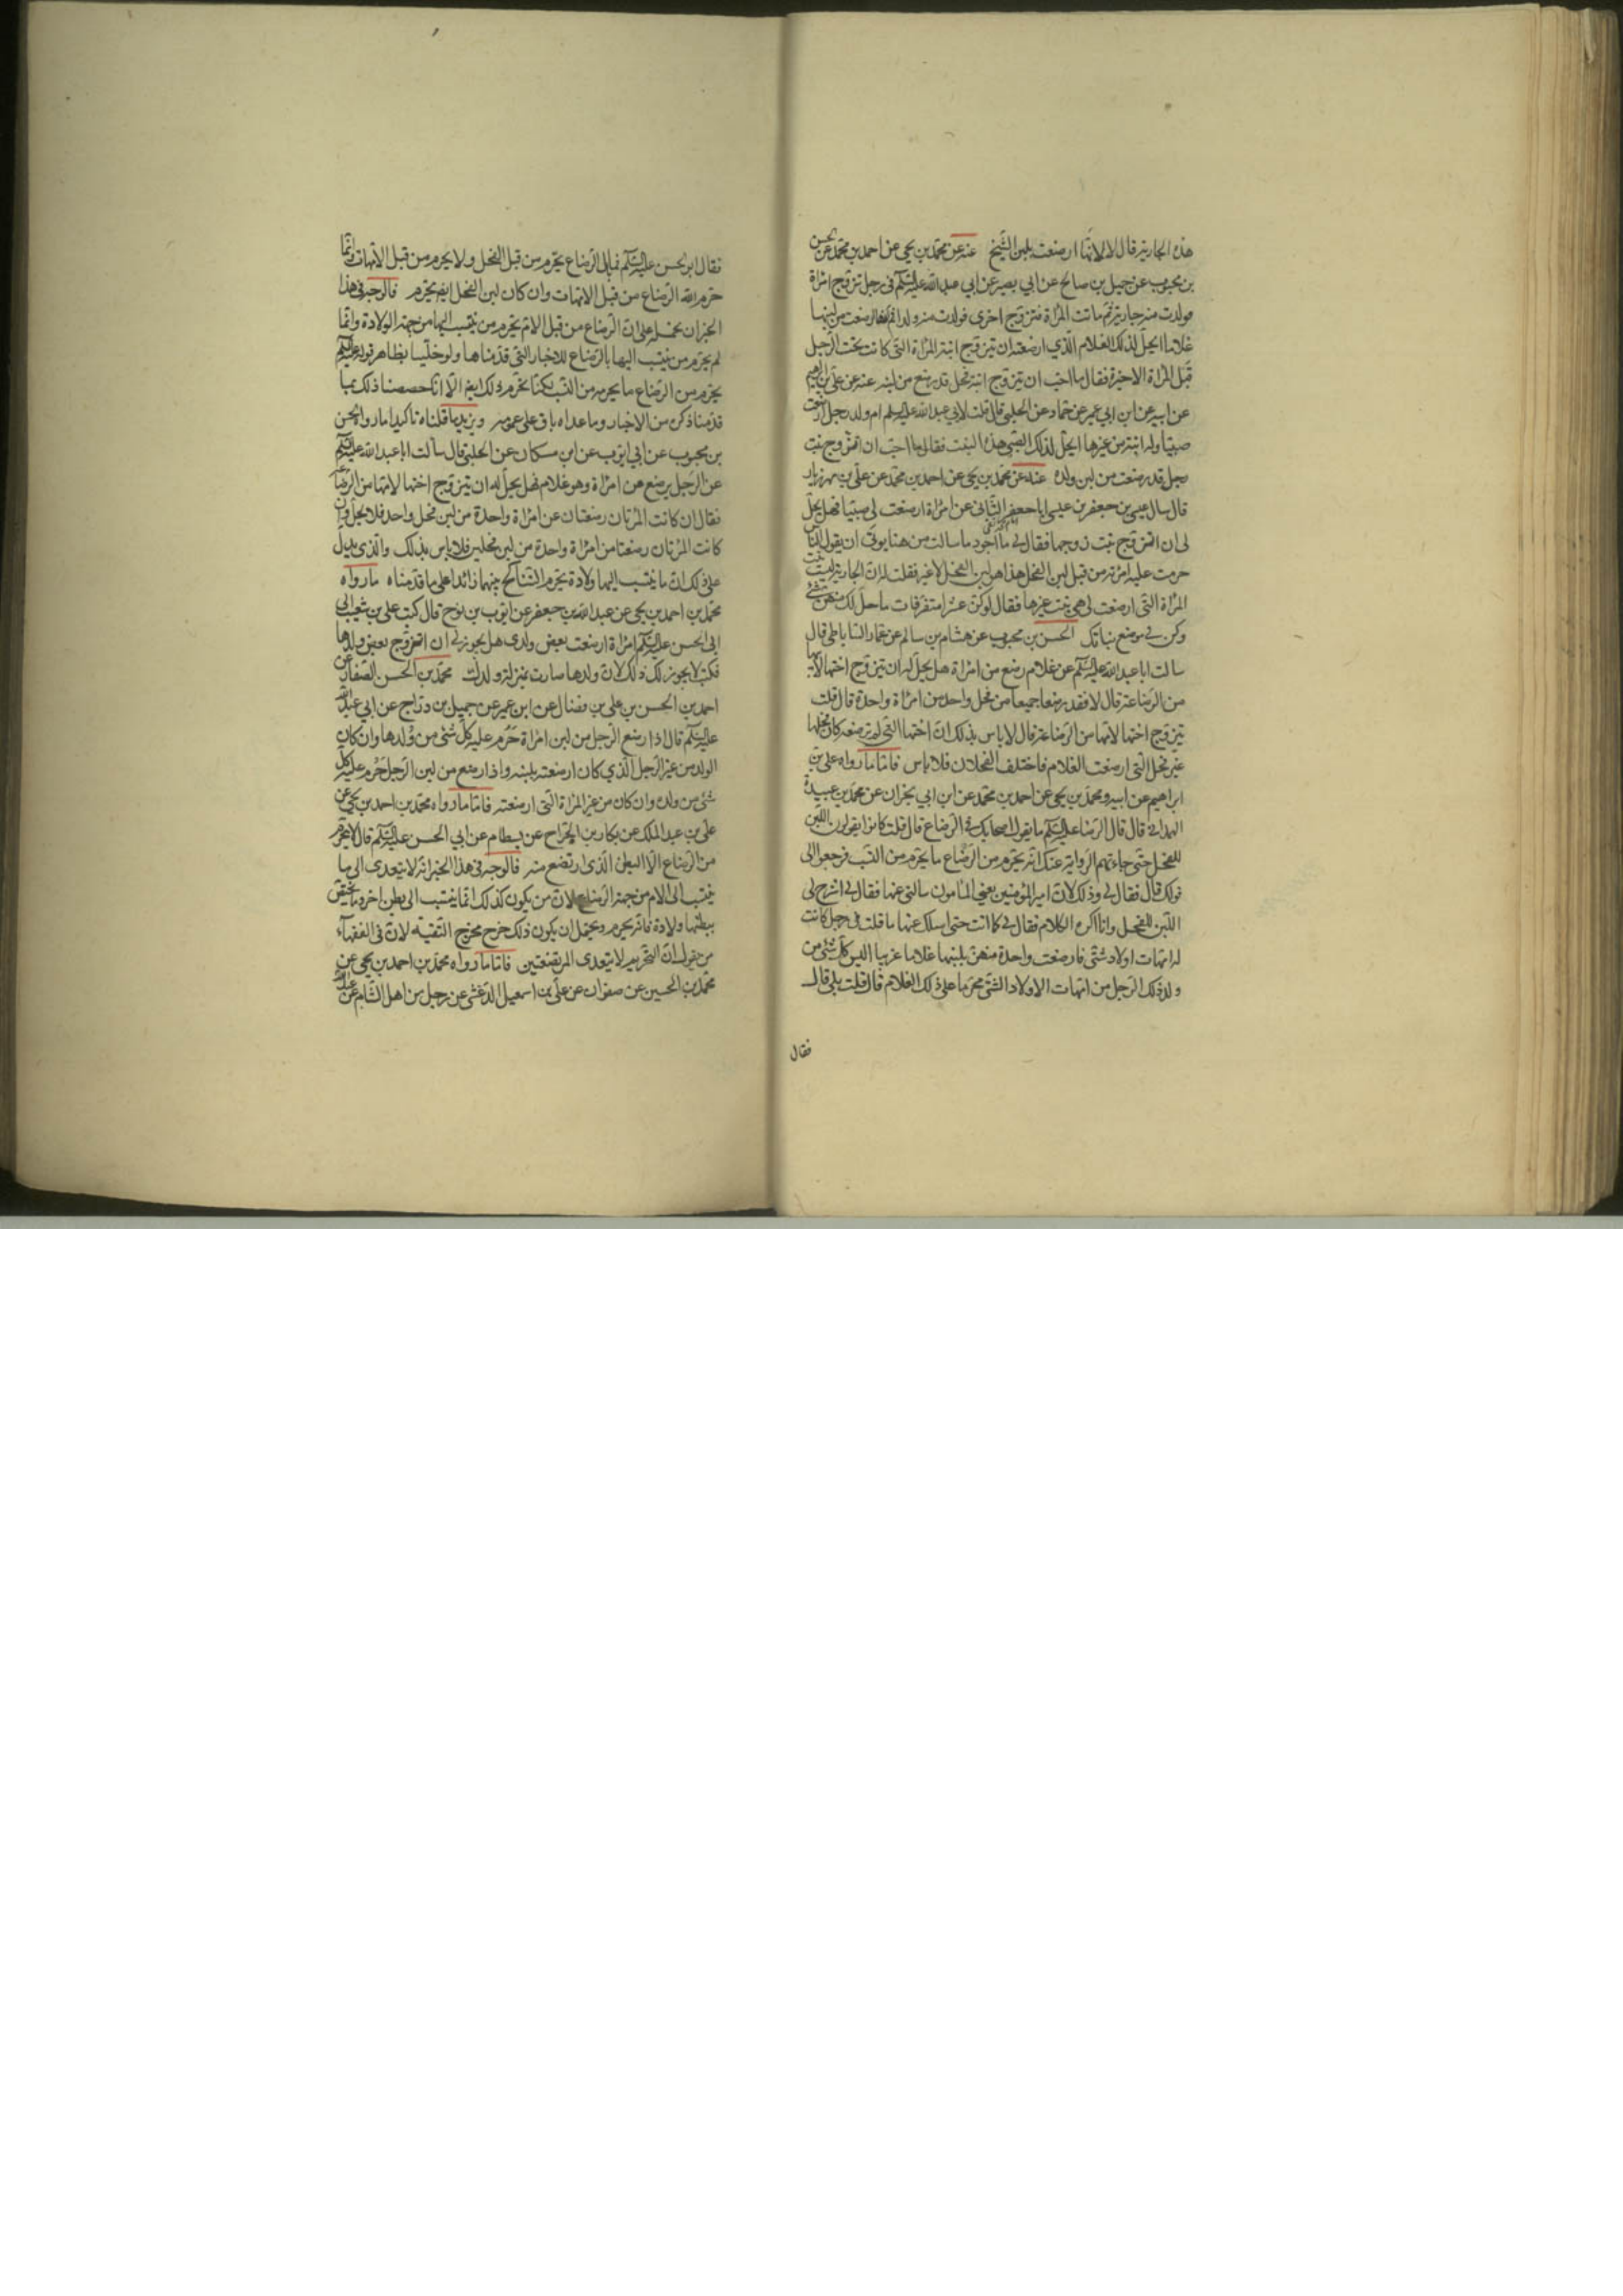 هذه الجارية قال لا لانها ارضعت بلبن الشيخ عنه عن محمد بن يحيى عن احمد بن محمد عن الحسن
بن محبوب عن جميل بن صالح عن ابي بصير عن ابي عبد الله عليه السلم في رجل تزوج امراة
فولدت منه جارية ثم ماتت المراة فتزوج اخرى فولدت منه ولدا ثم انها ارضعت من لبنها
غلاما ايحل لذلك الغلام الذي ارضعته ان يتزوج ابنة المراة التي كانت تحت الرجل
قبل المراة الاخيرة فقال ما احب ان يتزوج ابنة فحل قد رضع من لبنه عنه عن علي بن ابرهيم
عن ابيه عن ابن ابي عمير عن حماد عن الحلبي قال قلت لابي عبد الله عليه السلم ام ولد رجل ارضعت
صبيا وله ابنة من غيرها ايحل لذلك الصبي هذه البنت فقال ما احب ان اتزوج بنت
رجل قد رضعت من لبن ولده عنه عن محمد بن يحيى عن احمد بن محمد عن علي بن مهزيار
قال سال عيسى بن جعفر بن عيسى ابا جعفر الثاني عن امراة ارضعت لي صبيا فهل يحل
لي ان اتزوج بنت زوجها فقال لي ما اجود ما سالت من هنا يوتى ان يقول الناس
حرمت عليه امرته من قبل لبن الفحل هذا هو لبن الفحل لا غير فقلت له ان الجارية ليست بنت
المراة التي ارضعت لي هي بنت غيرها فقال لو كن عشرا متفرقات ما حل لك منهن شئ
وكن في موضع بناتك الحسن بن محبوب عن هشام بن سالم عن عمار الساباطي قال
سالت ابا عبد الله عليه السلم عن غلام رضع من امراة هل يحل له ان يتزوج اختها لابيها
من الرضاعة قال لا فقد رضعا جميعا من فحل واحد من امراة واحدة قال قلت
يتزوج اختها لامها من الرضاعة قال لا باس بذلك ان اختها التي لم ترضعه كان فحلها
غير فحل التي ارضعت الغلام فاختلف الفحلان فلا باس فاما ما رواه علي بن
ابراهيم عن ابيه ومحمد بن يحيى عن احمد بن محمد عن ابن ابي نجران عن محمد بن عبيدة
الهمداني قال قال الرضا عليه السلم ما يقول اصحابك في الرضاع قال قلت كانوا يقولون اللبن
للفحل حتى جاءتهم الرواية عنك انه يحرم من الرضاع ما يحرم من النسب فرجعوا الى
قولك قال فقال لي وذلك لان امير المؤمنين يعني المامون سالني عنها فقال لي اشرح لي
اللبن للفحل وانا اكره الكلام فقال لي كما انت حتى اسلك عنها ما قلت في رجل كانت
له امهات اولاد شتى فارضعت واحدة منهن بلبنها غلاما غريبا اليس كل شئ من
ولد ذلك الرجل من امهات الاولاد الشتى محرما على ذلك الغلام قال قلت بلى قال
فقال
فقال ابو الحسن عليه السلم فما بال الرضاع يحرم من قبل الفحل ولا يحرم من قبل الامهات وانما
حرم الله الرضاع من قبل الامهات وان كان لبن الفحل ايضا يحرم فالوجه في هذا
الخبر ان نحمله على ان الرضاع من قبل الام يحرم من ينتسب اليها من جهة الولادة وانما
لم يحرم من ينتسب اليها بالرضاع للاخبار التي قدمناها ولو خلينا بظاهر قوله عليه السلم
يحرم من الرضاع ما يحرم من النسب لكنا نحرم ذلك ايضا الا انا خصصنا ذلك بما
قدمنا ذكره من الاخبار وما عداه باق على عمومه ويزيد ما قلناه تاكيدا ما رواه الحسن
بن محبوب عن ابي ايوب عن ابن مسكان عن الحلبي قال سالت ابا عبد الله عليه السلم
عن الرجل يرضع من امراة وهو غلام فهل يحل له ان يتزوج اختها لامها من الرضاعة
فقال ان كانت المرتان رضعتا من امراة واحدة من لبن فحل واحد فلا يحل وان
كانت المرتان رضعتا من امراة واحدة من لبن فحلين فلا باس بذلك والذي يدل
على ذلك ان ما ينتسب اليها ولادة يحرم التناكح بينهما زائدا على ما قدمناه ما رواه
محمد بن احمد بن يحيى عن عبد الله بن جعفر عن ايوب بن نوح قال كتب علي بن شعيب الى
ابي الحسن عليه السلم امراة ارضعت بعض ولدي هل يجوز لي ان اتزوج بعض ولدها
فكتب لا يجوز لك ذلك لان ولدها صارت بمنزلة ولدك محمد بن الحسن الصفار عن
احمد بن الحسن بن علي بن فضال عن ابن عمير عن جميل بن دراج عن ابي عبد الله
عليه السلم قال اذا رضع الرجل من لبن امراة حرم عليه كل شئ من ولدها وان كان
الولد من غير الرجل الذي كان ارضعته بلبنه واذا رضع من لبن الرجل حرم عليه كل
شئ من ولده وان كان من غير المراة التي ارضعته فاما ما رواه محمد بن احمد بن يحيى عن
علي بن عبد الملك عن بكار بن الجراح عن بسطام عن ابي الحسن عليه السلم قال لا يحرم
من الرضاع الا البطن الذي ارتضع منه فالوجه في هذا الخبر انه لا يتعدى الى ما
ينتسب الى الام من جهة الرضاع لان من يكون كذلك انما ينتسب الى بطن اخر وما يختص
ببطنها ولادة فانه يحرم ويحتمل ان يكون ذلك خرج مخرج التقية لان في الفقهآء
من يقول ان التحريم لا يتعدى المرتضعين فاما ما رواه محمد بن احمد بن يحيى عن
محمد بن الحسين عن صفوان عن علي بن اسمعيل الدغشي عن رجل من اهل الشام عن